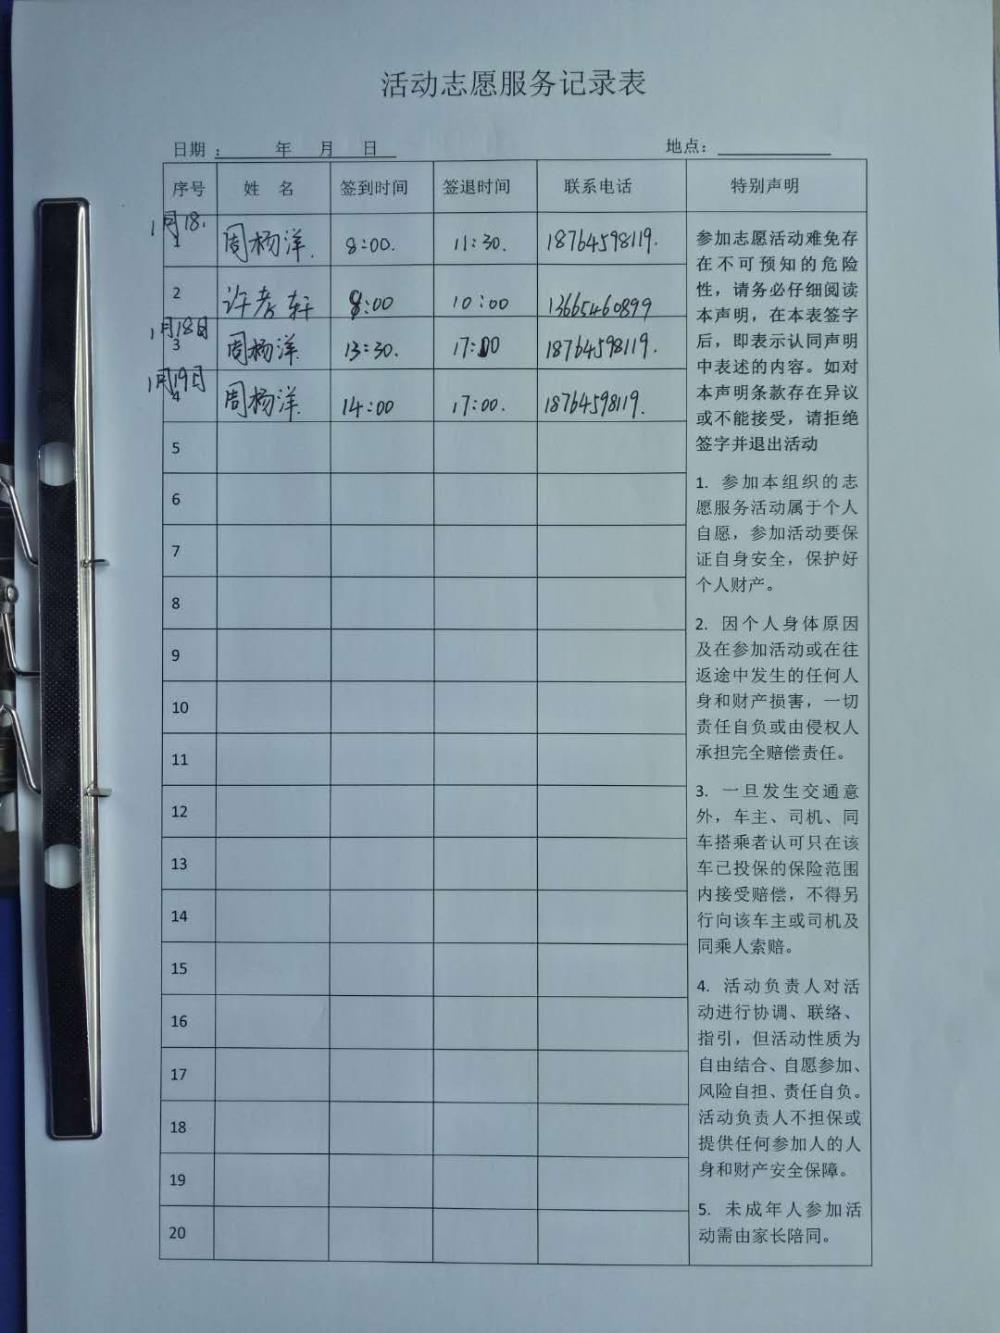 活动志愿服务记录表
日期：　　年　月　日　地点：
序号 姓 名 签到时间 签退时间 联系电话 特别声明
1月18.
1 周杨洋. 8:00. 11:30. 18764598119.
2 许孝轩 8:00 10:00 13665460899
1月18日
3 周杨洋. 13:30. 17:00 18764598119.
1月19日
4 周杨洋. 14:00 17:00. 18764598119.
5
6
7
8
9
10
11
12
13
14
15
16
17
18
19
20
参加志愿活动难免存
在不可预知的危险
性，请务必仔细阅读
本声明，在本表签字
后，即表示认同声明
中表述的内容。如对
本声明条款存在异议
或不能接受，请拒绝
签字并退出活动
1. 参加本组织的志
愿服务活动属于个人
自愿，参加活动要保
证自身安全，保护好
个人财产。
2. 因个人身体原因
及在参加活动或在往
返途中发生的任何人
身和财产损害，一切
责任自负或由侵权人
承担完全赔偿责任。
3. 一旦发生交通意
外，车主、司机、同
车搭乘者认可只在该
车已投保的保险范围
内接受赔偿，不得另
行向该车主或司机及
同乘人索赔。
4. 活动负责人对活
动进行协调、联络、
指引，但活动性质为
自由结合、自愿参加、
风险自担、责任自负。
活动负责人不担保或
提供任何参加人的人
身和财产安全保障。
5. 未成年人参加活
动需由家长陪同。